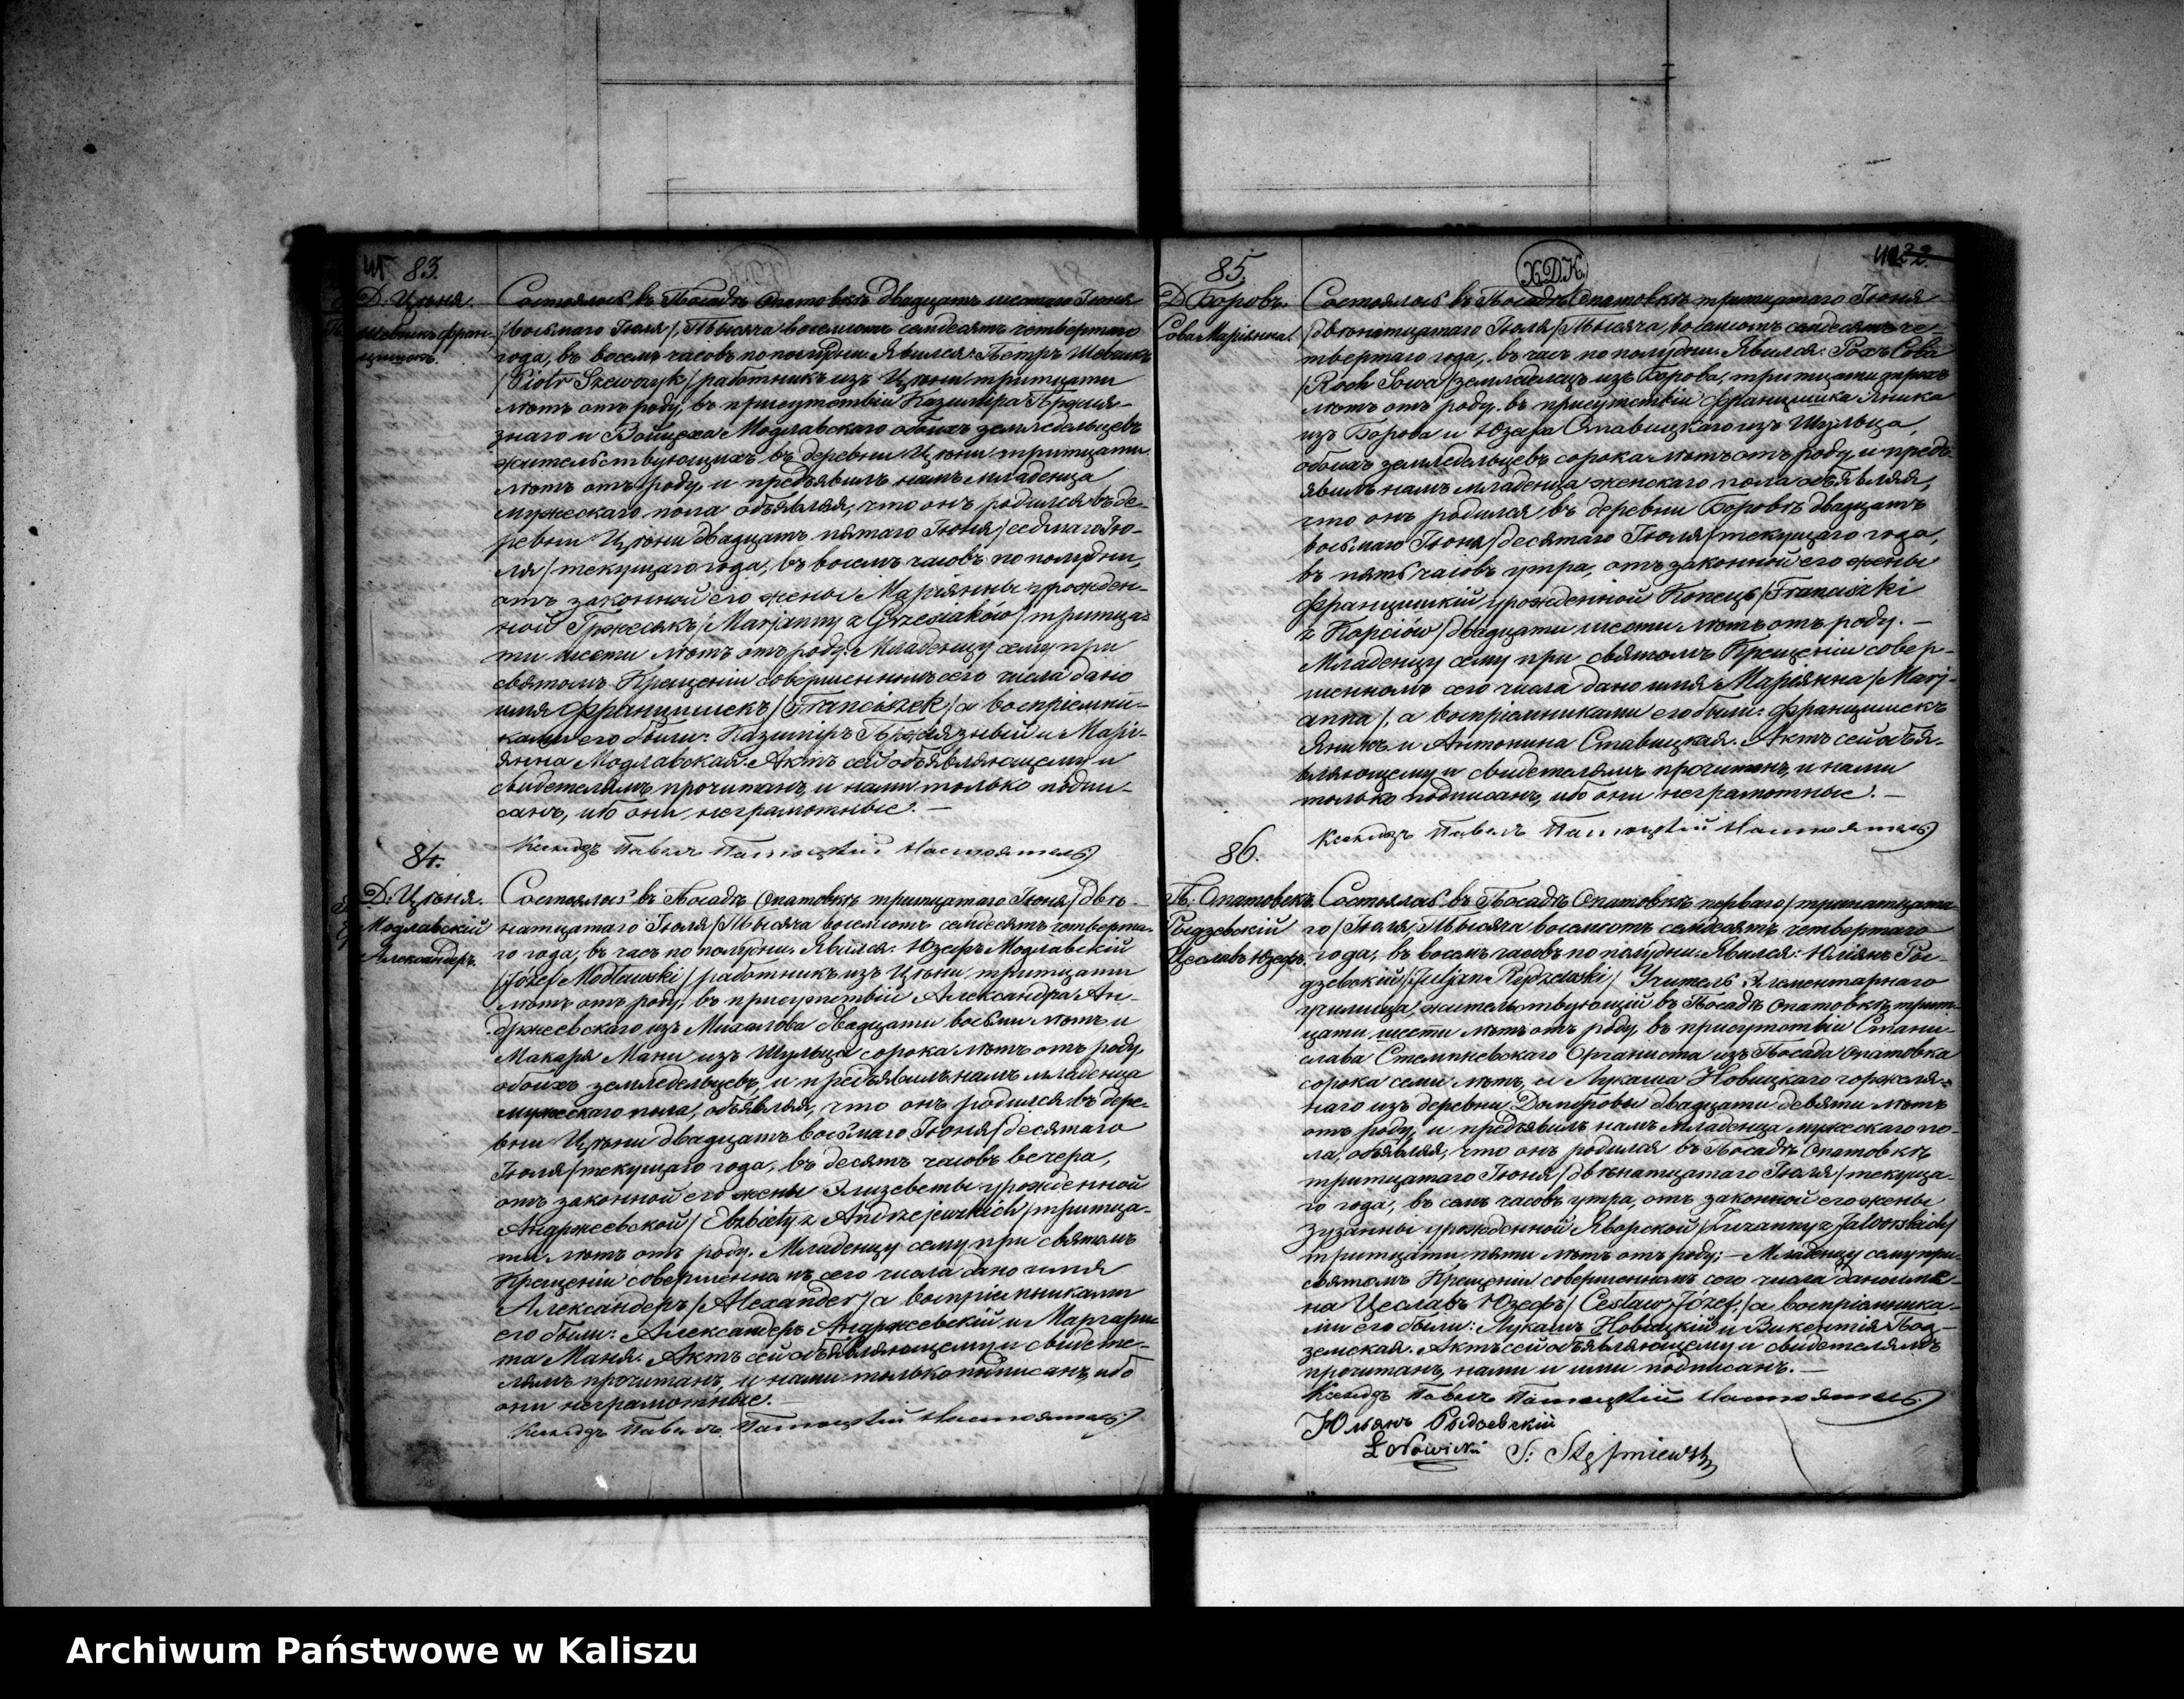 83.
Д. Цѣня.
Шевчикъ Фран-
цишекъ.
Состоялось въ Посадѣ Опатовкѣ двадцать шестаго Іюня
/восьмаго Іюля/ Тысяча восемьсотъ семдесятъ четвертаго
года, въ восемь часовъ по полудни. Явился: Петръ Шевчикъ
/Piotr Szewczyk/ работникъ изъ Цѣни тритцати
лѣтъ отъ роду, въ присутствіи Казимира
знаго и Войцеха Модлавскаго обоихъ земледельцевъ
жительствующихъ въ деревни Цѣни тритцати
лѣтъ отъ роду, и предъявилъ намъ младенца
мужескаго пола объявляя, что онъ родился въ де-
ревни Цѣни двадцать пятаго Іюня /седмаго Ію-
ля/ текущаго года, въ восемь часовъ по полудни,
отъ законной его жены Маріянны урожден-
ной Гржесякъ /Marjanny z Grzesiaków/ тритца-
ти шести лѣтъ отъ роду. Младенцу сему при
святомъ Крещеніи совершенномъ сего числа дано
имя Францишекъ /Franciszek/ а воспріемни-
ками его были: Казимиръ и Марі-
янна Модлавская. Актъ сей объявляющему и
свидетелямъ прочитанъ, и нами только подпи-
санъ, ибо они неграмотные. —
Ксендзъ Павелъ Настоятель
84.
Д: Цѣня.
Модлавскій
Александеръ.
Состоялось въ Посадѣ Опатовкѣ тритцатаго Іюня /двѣ-
натцатаго Іюля/ Тысяча восемьсотъ семдесятъ четверта-
го года, въ часъ по полудни. Явился: Юзефъ Модлавскій
/Józef Modławski/ работникъ изъ Цѣни тритцати
лѣтъ отъ роду, въ присутствіи Александра Ан-
држеевскаго изъ Михалова двадцати восьми лѣтъ и
Макаря Мани изъ Шульца сорока лѣтъ отъ роду,
обоихъ земледельцевъ, и предъявилъ намъ младенца
мужескаго пола, объявляя, что онъ родился въ дере-
вни Цѣни двадцать восьмаго Іюня /десятаго
Іюля/ текущаго года, въ десять часовъ вечера,
отъ законной его жены Элизеветы урожденной
Андржеевской /Elżbiety z Andrzejewskich/ тритца-
ти лѣтъ отъ роду. Младенцу сему при святомъ
Крещеніи совершенномъ сего числа дано имя
Александеръ /Alexander/ а воспріемниками
его были: Александеръ Андржеевскій и Маргари-
та Маня. Актъ сей объявляющему и свидете-
лямъ прочитанъ, и нами только подписанъ, ибо
они неграмотные.
Ксендзъ Павелъ Настоятель
85.
Д Боровъ.
Сова Маріянна.
ХДК
Состоялось въ Посадѣ Опатовкѣ тритцатаго Іюня
/двѣнатцатаго Іюля/ Тысяча восемьсотъ семдесятъ че-
твертаго года, въ часъ по полудни. Явился: Рохъ Сова
/Roch Sowa/ земледелецъ изъ Борова, тритцати
лѣтъ отъ роду, въ присутствіи Францишка Яника
изъ Борова и Юзефа Ставицкаго изъ Шульца,
обоихъ земледельцевъ сорока лѣтъ отъ роду, и предъ-
явилъ намъ младенца женскаго пола объявляя,
что онъ родился въ деревни Боровѣ двадцать
восьмаго Іюня /десятаго Іюля/ текущаго года,
въ пять часовъ утра, отъ законной его жены
Францишки урожденной /Franciszki
z / двадцати шести лѣтъ отъ роду. —
Младенцу сему при святомъ Крещеніи совер-
шенномъ сего числа дано имя Маріянна /Marj-
anna/, а воспріемниками его были: Францишекъ
Яникъ и Антонина Ставицкая. Актъ сей объя-
вляющему и свидетелямъ прочитанъ, и нами
только подписанъ, ибо они неграмотные. —
Ксендзъ Павелъ Настоятель
86.
П. Опатовекъ.
Рыдзевскій
Цеславъ Юзефъ.
Состоялось въ Посадѣ Опатовкѣ перваго /тринатцата-
го/ Іюля, Тысяча восемьсотъ семдесятъ четвертаго
года, въ восемь часовъ по полудни. Явился: Юліянъ Ры-
дзевскій /Juljan Rydzewski/ Учитель Элементарнаго
училища, жительствующій въ Посадѣ Опатовкѣ, трит-
цати шести лѣтъ отъ роду, въ присутствіи Стани-
слава Стемпневскаго Органиста изъ Посада Опатовка
сорока семи лѣтъ, и Лукаша Новицкаго горжеля-
наго изъ деревни Домбровы двадцати девяти лѣтъ
отъ роду, и предъявилъ намъ младенца мужескаго по-
ла, объявляя, что онъ родился въ Посадѣ Опатовкѣ
тритцатаго Іюня /двѣнатцатаго Іюля/ текуща-
го года, въ семь часовъ утра, отъ законной его жены
Зузанны урожденной Яворской /Zuzanny z Jaworskich/
тритцати пяти лѣтъ отъ роду; — Младенцу сему при
святомъ Крещеніи совершенномъ сего числа даны име-
на Цеславъ Юзефъ /Cesław, Józef,/ а воспріемника-
ми его были: Лукашъ Новицкій и Викентія
земская. Актъ сей объявляющему и свидетелямъ
прочитанъ, нами и ими подписанъ. —
Ксендзъ Павелъ Настоятель
Юльянъ Рыдзевскій
Ł Nowicki S: Stępniewski
Archiwum Państwowe w Kaliszu